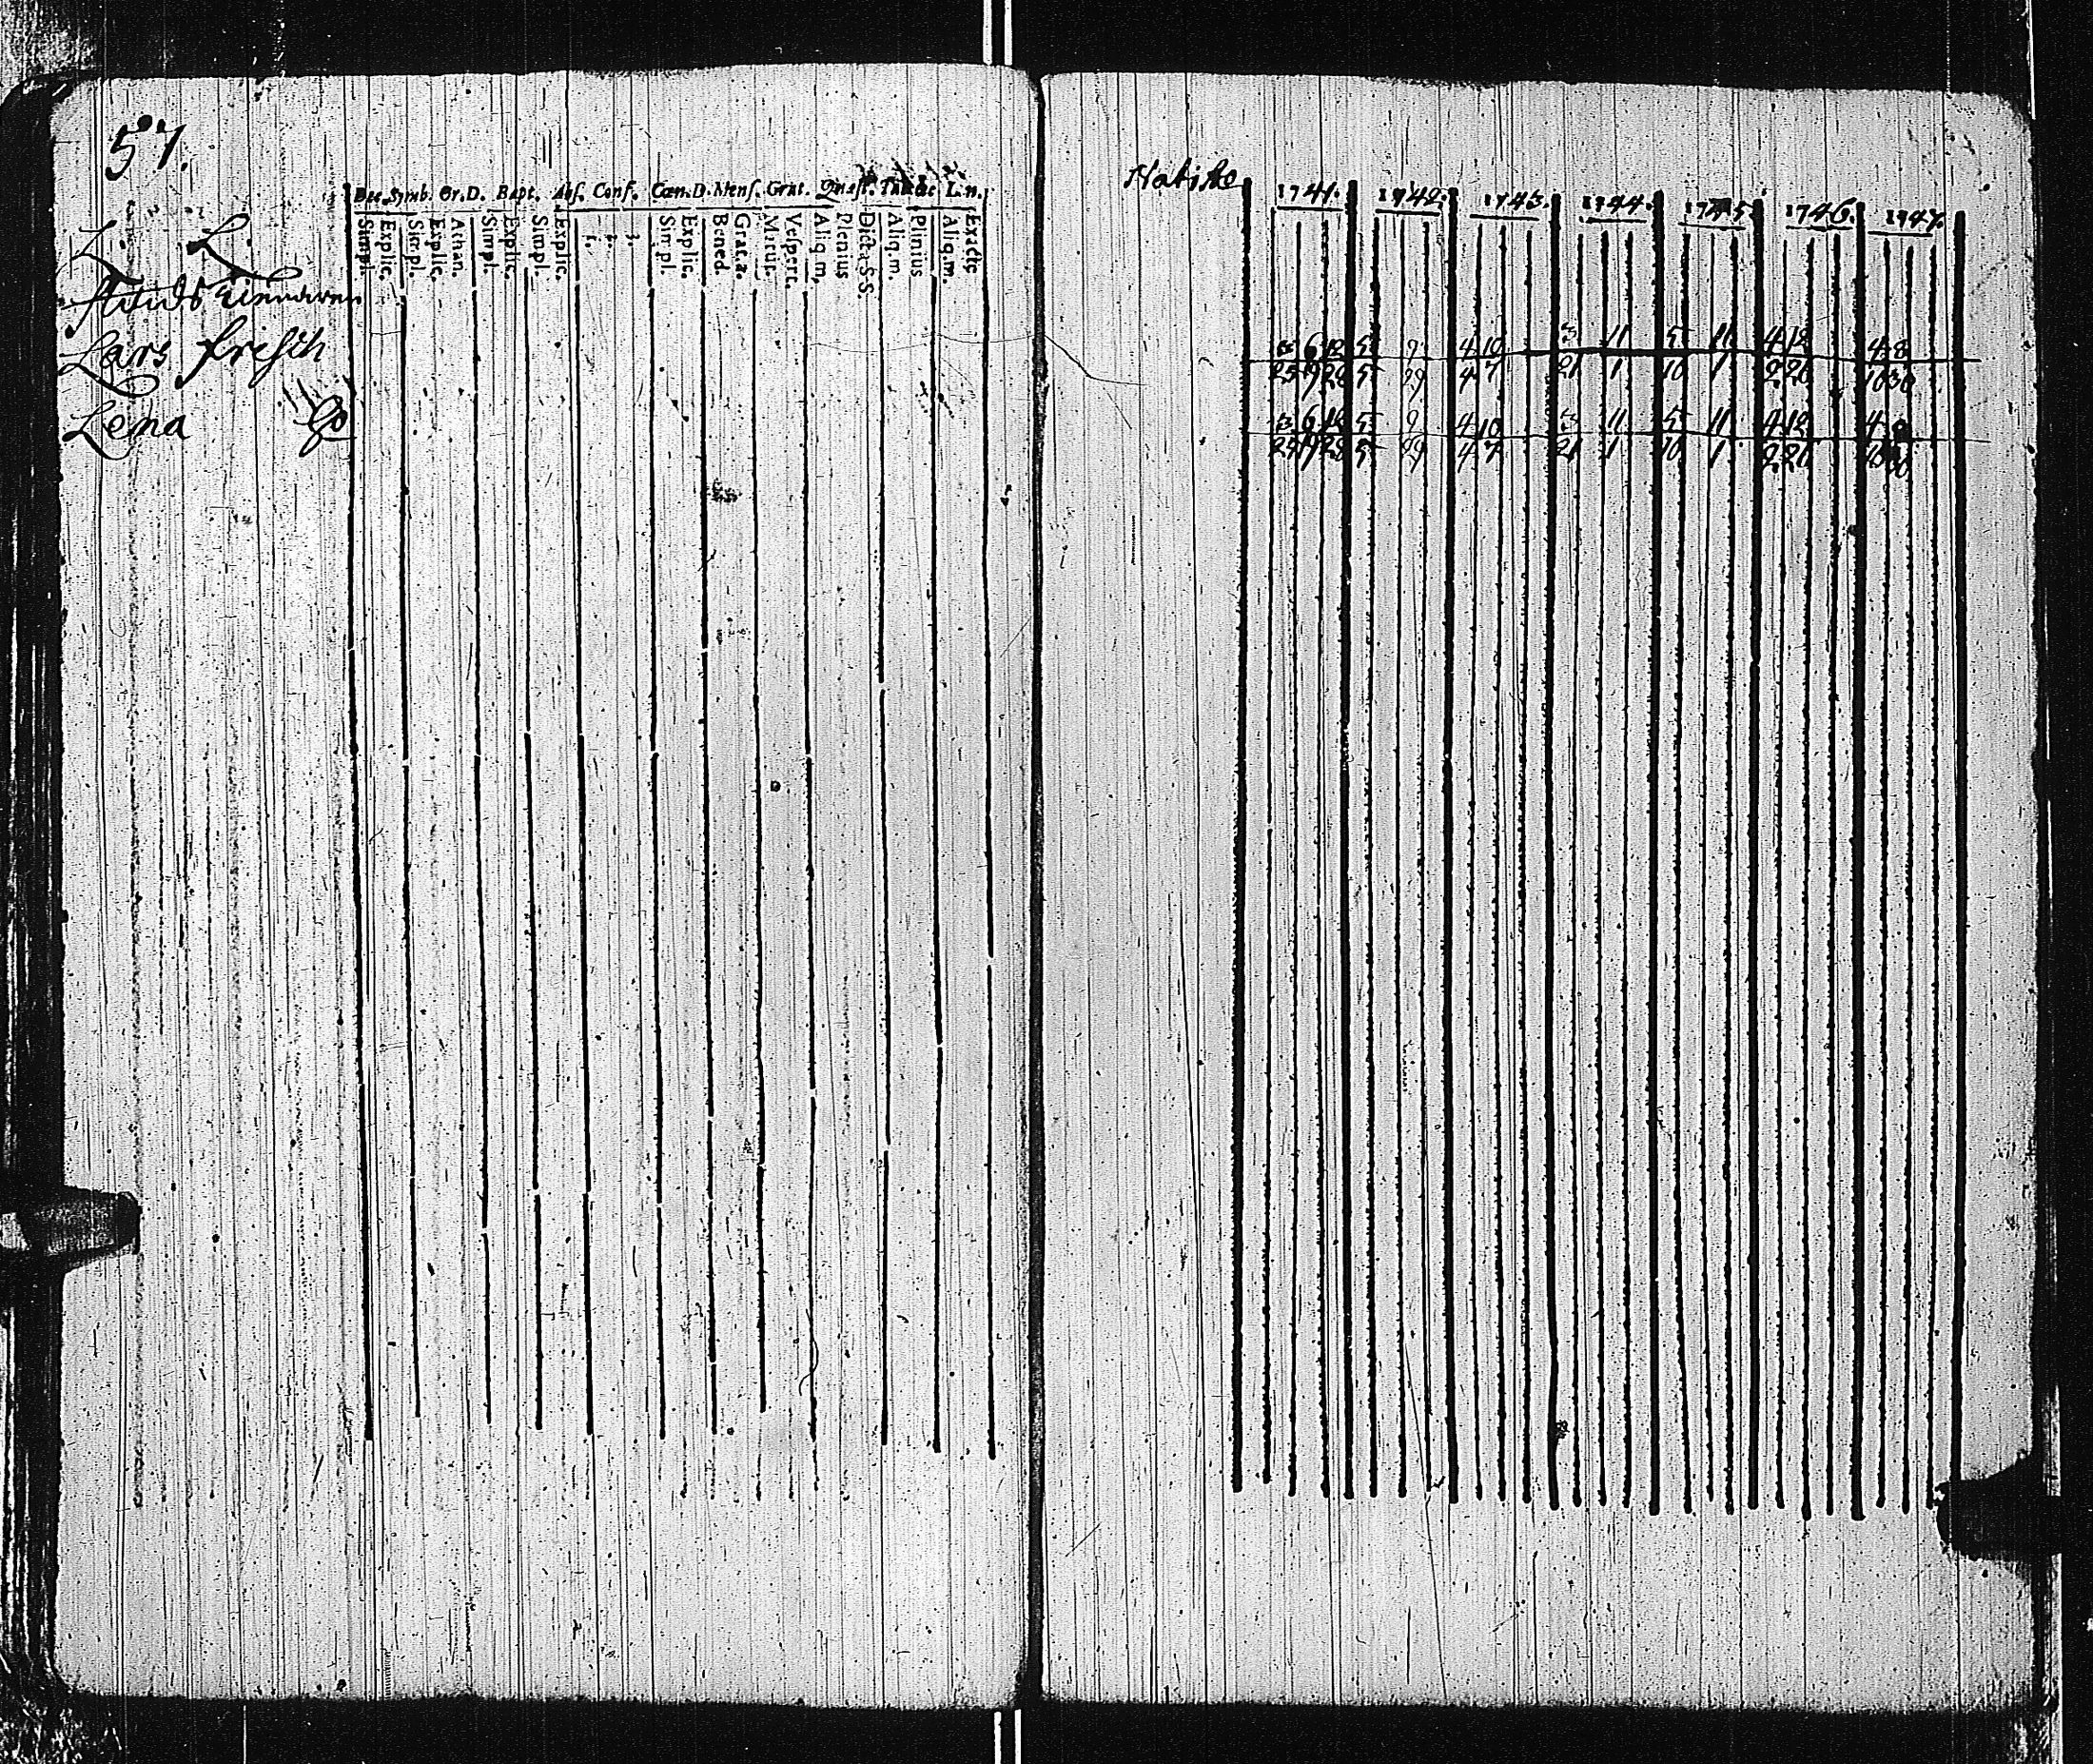 57.
Dec. Symb. Or. D. Bapt. Abs. Conf. Cœn. D. Mens. Grat. Quæst. L. n.
Simpl. Explic. Simpl. Explic. Athan. Simpl. Explic. Simpl. Explic. 1. 2. 3. Simpl. Explic. Bened. Grat. a. Matut. Vespert. Aliq. m. Plenius Dicta S. S. Aliq. m. Plinius Aliq. m. Exacte
L. L.
Lars Frisch
Lena
Notiske
1741. 1742. 1743. 1744. 1745. 1746. 1747.
6 12 5 9 4 10 3 11 5 11 4 12 4 8
25 19 28 5 29 4 7 21 1 10 1 2 20 10 30
6 12 5 9 4 10 3 11 5 11 4 12 4
25 19 28 5 29 4 7 21 1 10 1 2 20